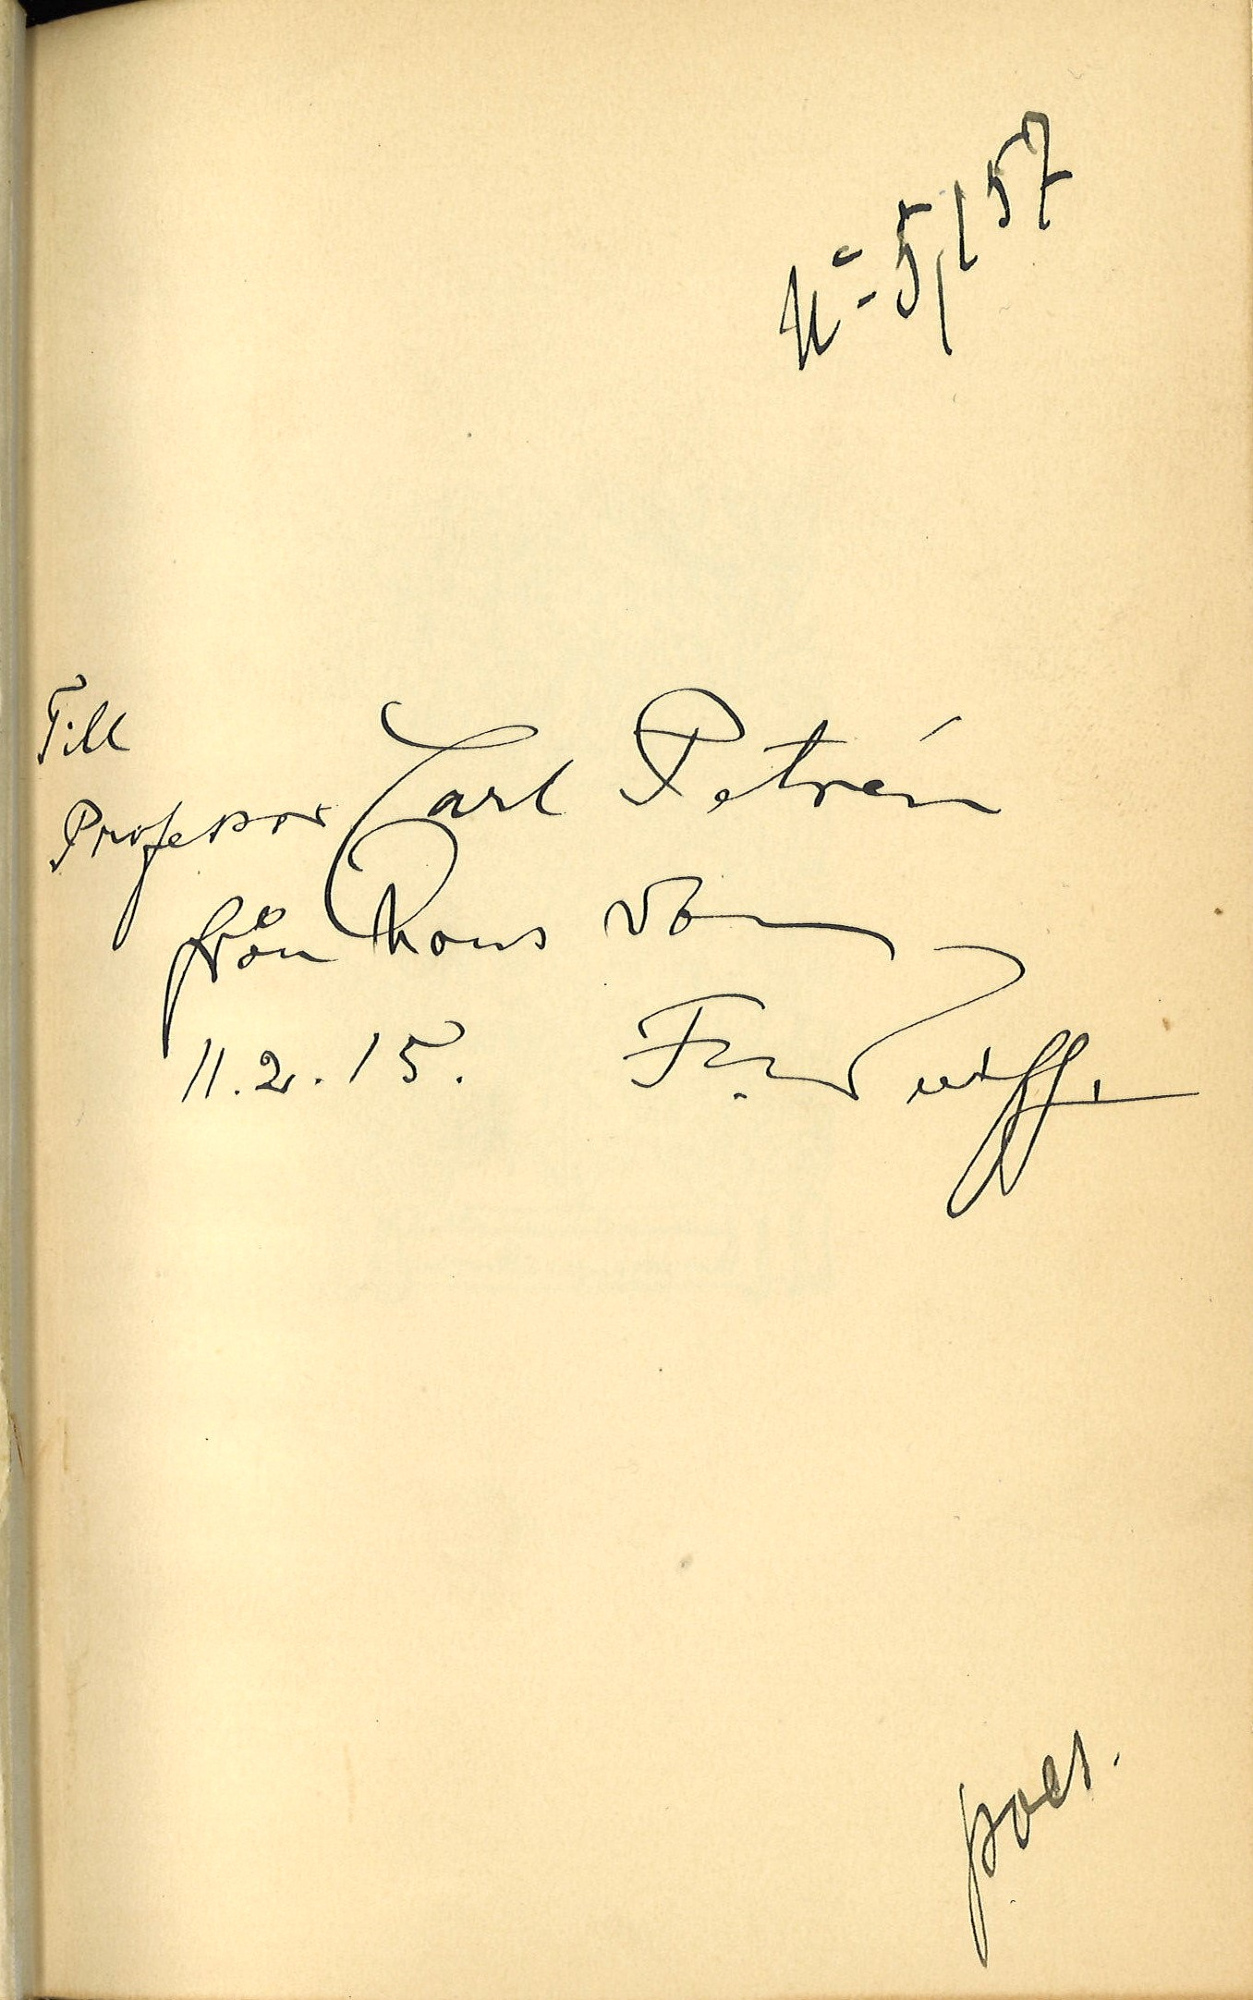 5/1 57
Till
Professor Carl Petrén
från hans vän
11.2.15. Fr. Wulff.
poes.